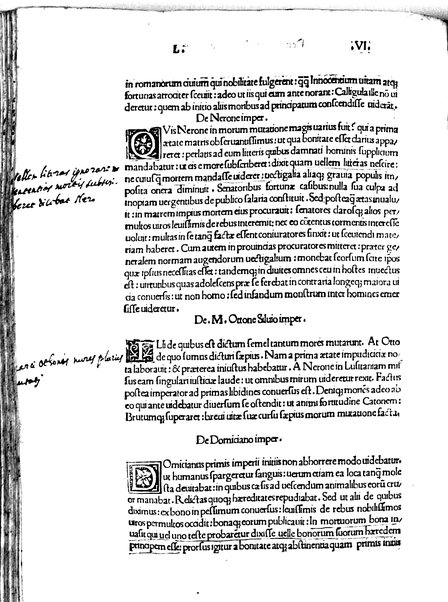 L. VI.
in romanorum ciuium qui nobilitate fulgerent: qꝗ Innocentium uitam atq;
fortunas atrociter sæuiit: adeo ut iis qui eum ante norant: Calligula ille nõ ui
deretur: quem ab initio aliis moribus ad principatum conscendisse uiderãt.
De Nerone imper.
QVis Nerone in morum mutatione magis uarius fuit? qui a prima
ætate matris obseruantissimus: ut qua bonitate esset darius appa
reret: perlatis ad eum litteris quibus damnati hominis supplicium
mandabatur: ut eis e more subscriberet: dixit quam uellem litteras nescire:
ne cuiusq̃ mortem mandasse uiderer: uectigalia aliaq; grauia populis im
posita onera diminuit. Senatoribus fortunæ casibus: nulla sua culpa ad
inopiam uergentibus de publico salaria constituit. Sed posteaq̃ ætas inualu
it: in matrem impius mortem eius procurauit: senatores clarosq; alios per
multos uiros leuissimis de rebus interemit: nec eo cõtentus tormentis interesse
uoluit: multas in se tanq̃ factæ essent coniuratores finxit: ut sæuiendi mate
riam haberet. Cum autem in prouincias procuratores mitteret: præter ge
neralem normam augendorum uectigalium: monebat seorsum scire ipos
quæ ipsius necessitas esset: tandemq; in diuites omnes ceu in hostes inuectus
est: uirtutibus quas adolescens præ se ferebat in contraria longeq; maiora ui
cia conuersis: ut non homo: sed infandum monstrum inter homines emer
sisse uideretur.
De.M. Ottone Siluio imper.
ILli de quibus est dictum semel tantum mores mutarunt. At Otto
de quo sumus dicturi sæpius. Nam a prima ætate impudicitiæ no
ta laborauit: & præterea iniustus habebatur. A Nerone in Lusitaniam mis
sus eam singulari iusticiæ laude: ut omnibus mirum uideretur rexit. Factus
postea imperator ad primas libidines conuersus est. Deniq; mores adeo ab
eo qui ante uidebatur diuersum se ostendit: ut animi fortitudine Catonem:
Brutumq; superaret: breui uitæ suæ cursu sæpius morum mutatione facta.
De Domiciano imper.
DOmicianus primis imperii initiis non abhorrere modo uidebatur
ut humanus spargeretur sanguis: uerum etiam ea loca tanq̃ mole
sta deuitabat: in quibus cæsis ad uescendum animalibus eorũ cru
or manabat. Relictas quoq; hæreditates repudiabat. Sed ut alii de quibus
diximus: ex bono in pessimum conuersus: leuissimis de rebus nobilissimos
uiros permultos occidit: bonaq; eorum publicauit: In mortuorum bona in
uasit qui uel uno teste probaretur dixisse uelle bonorum suorum hæredem
principem esse: prorsus igitur a bonitate atq; abstinentia quam primis initiis